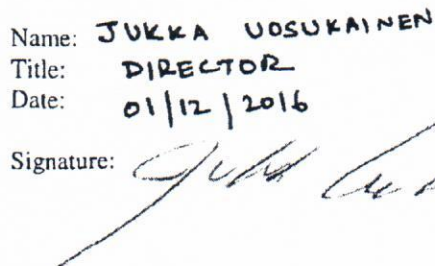 Name: JUKKA UOSUKAINEN
Title: DIRECTOR
Date: 01/12/2016
Signature: